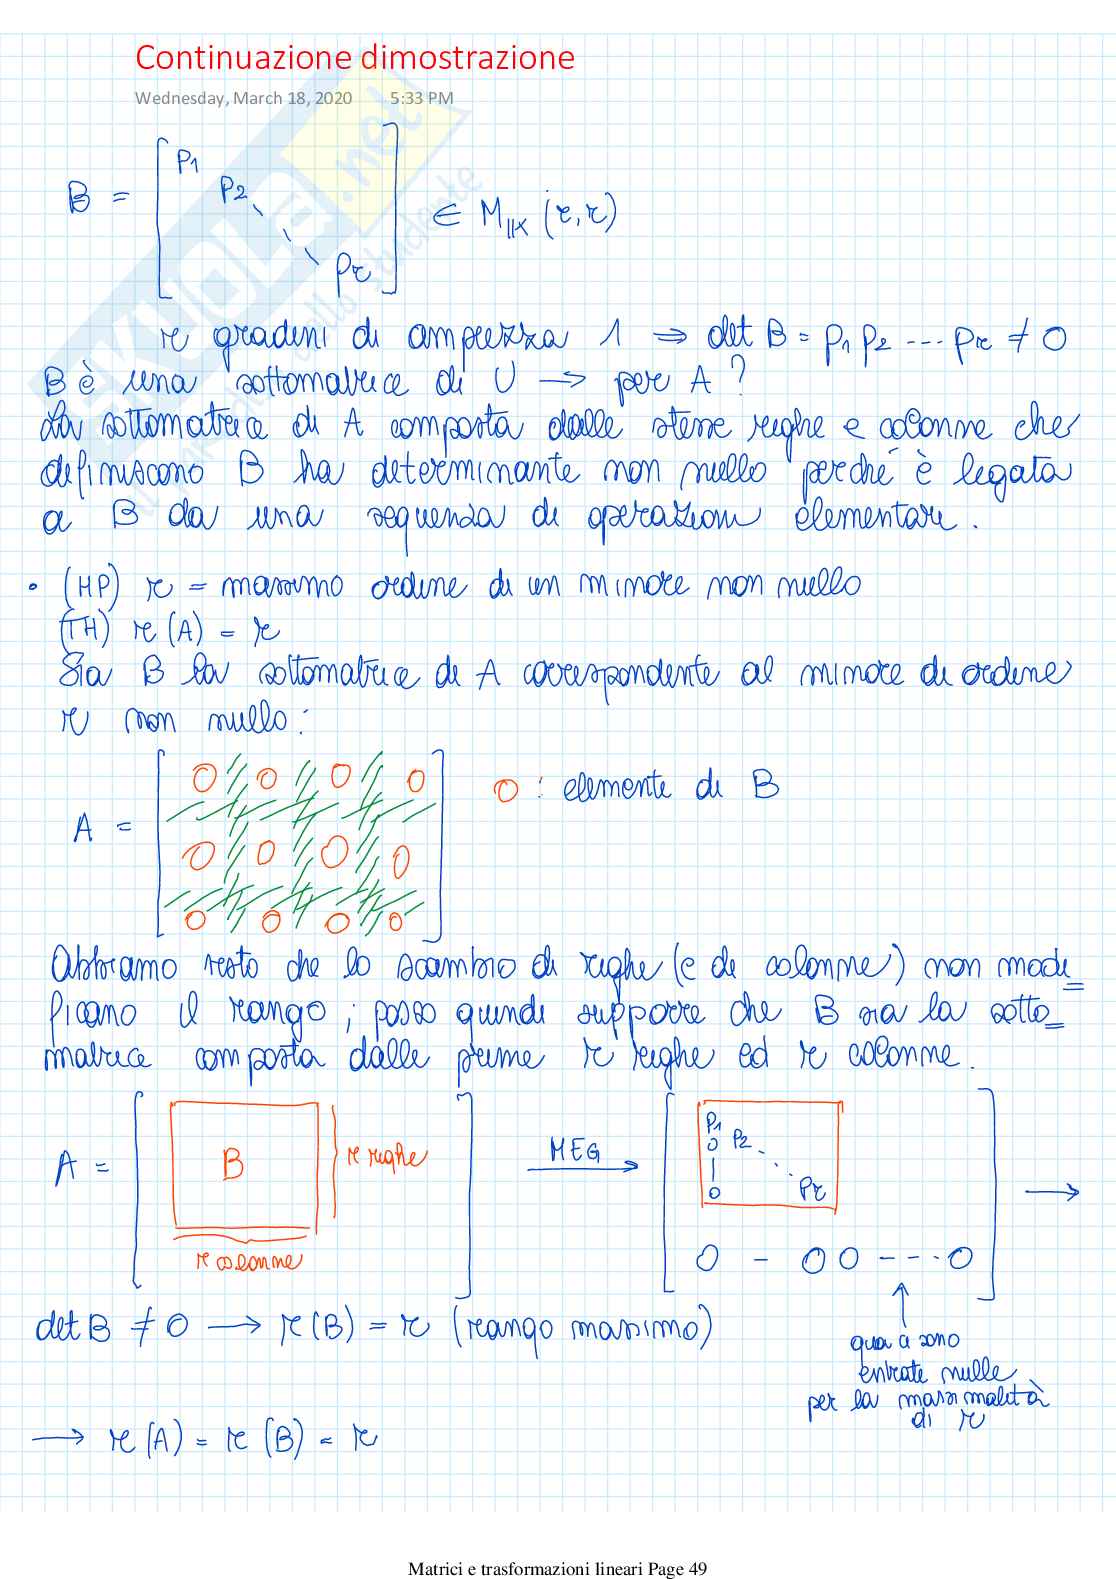 Continuazione dimostrazione
Wednesday, March 18, 2020 5:33 PM
B = [ p1 p2 ⋱ pr ] ∈ M_IK (r,r)
r gradini di ampiezza 1 ⇒ det B = p1 p2 --- pr ≠ 0
B è una sottomatrice di U → per A?
La sottomatrice di A composta dalle stesse righe e colonne che
definiscono B ha determinante non nullo perché è legata
a B da una sequenza di operazioni elementari.
• (HP) r = massimo ordine di un minore non nullo
(TH) r(A) = r
Sia B la sottomatrice di A corrispondente al minore di ordine
r non nullo:
A = [ O O O O
O O O O
O O O O ]
O : elemente di B
Abbiamo visto che lo scambio di righe (e di colonne) non modi=
ficano il rango; posso quindi supporre che B sia la sotto=
matrice composta dalle prime r righe ed r colonne.
A = [ B ] r righe
r colonne
MEG →
[ p1
0 p2 ⋱
|
0 pr
0 - 0 0 --- 0 ] →
det B ≠ 0 → r(B) = r (rango massimo)
qua ci sono
entrate nulle
per la massimalità
di r
→ r(A) = r(B) = r
Matrici e trasformazioni lineari Page 49
SKUOLA.net